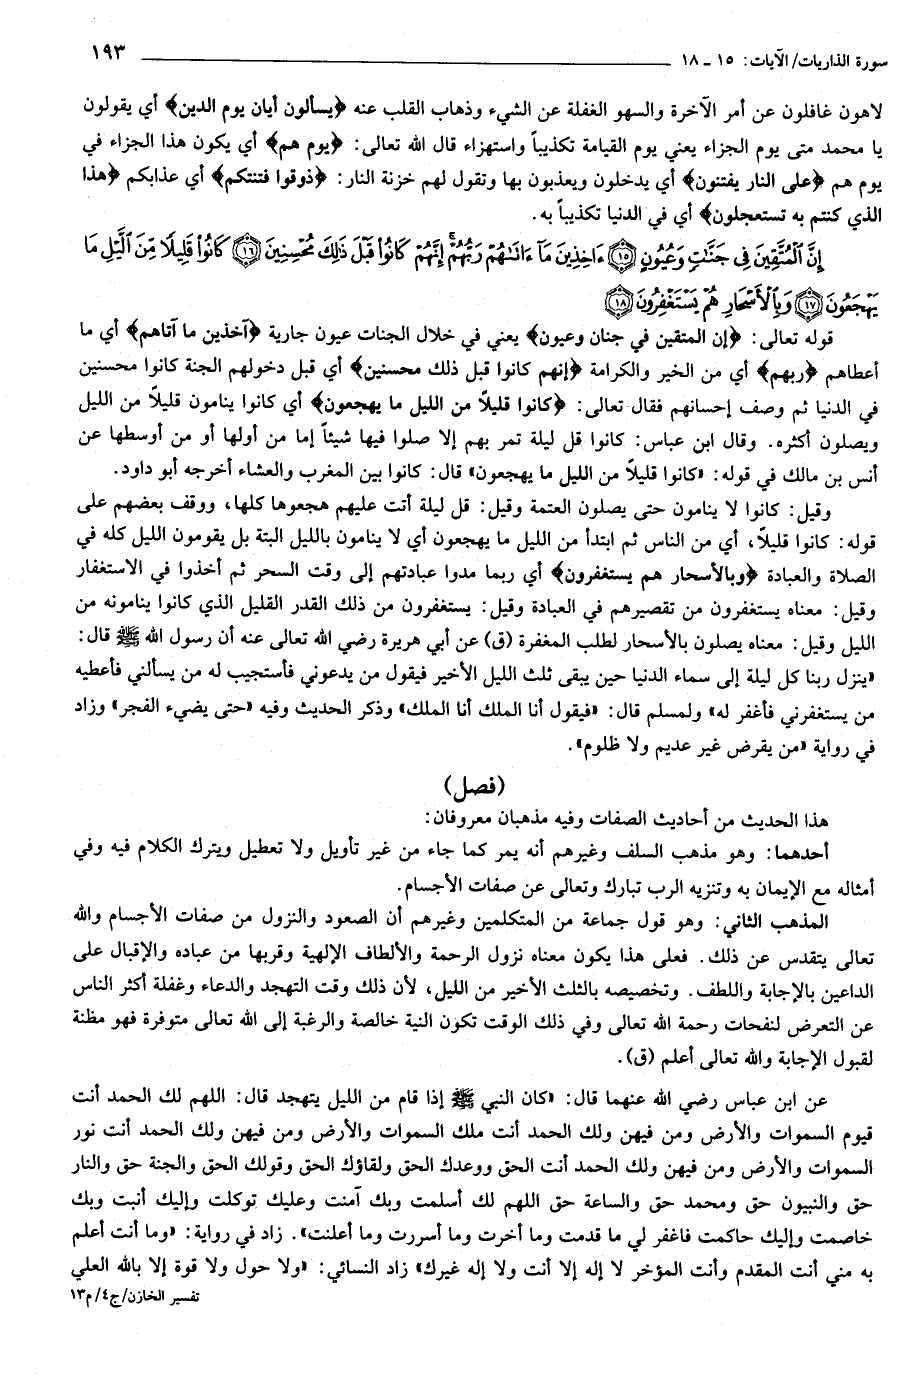 سورة الذاريات/ الآيات: ١٥ ـ ١٨ ١٩٣
لاهون غافلون عن أمر الآخرة والسهو الغفلة عن الشيء وذهاب القلب عنه ﴿يسألون أيان يوم الدين﴾ أي يقولون
يا محمد متى يوم الجزاء يعني يوم القيامة تكذيباً واستهزاء قال الله تعالى: ﴿يوم هم﴾ أي يكون هذا الجزاء في
يوم هم ﴿على النار يفتنون﴾ أي يدخلون ويعذبون بها وتقول لهم خزنة النار: ﴿ذوقوا فتنتكم﴾ أي عذابكم ﴿هذا
الذي كنتم به تستعجلون﴾ أي في الدنيا تكذيباً به.
إِنَّ الْمُتَّقِينَ فِي جَنَّاتٍ وَعُيُونٍ ﴿١٥﴾ ءَاخِذِينَ مَا ءَاتَاهُمْ رَبُّهُمْ إِنَّهُمْ كَانُوا قَبْلَ ذَلِكَ مُحْسِنِينَ ﴿١٦﴾ كَانُوا قَلِيلًا مِّنَ الَّيْلِ مَا
يَهْجَعُونَ ﴿١٧﴾ وَبِالْأَسْحَارِ هُمْ يَسْتَغْفِرُونَ ﴿١٨﴾
قوله تعالى: ﴿إن المتقين في جنان وعيون﴾ يعني في خلال الجنات عيون جارية ﴿آخذين ما آتاهم﴾ أي ما
أعطاهم ﴿ربهم﴾ أي من الخير والكرامة ﴿إنهم كانوا قبل ذلك محسنين﴾ أي قبل دخولهم الجنة كانوا محسنين
في الدنيا ثم وصف إحسانهم فقال تعالى: ﴿كانوا قليلاً من الليل ما يهجعون﴾ أي كانوا ينامون قليلاً من الليل
ويصلون أكثره. وقال ابن عباس: كانوا قل ليلة تمر بهم إلا صلوا فيها شيئاً إما من أولها أو من أوسطها عن
أنس بن مالك في قوله: «كانوا قليلاً من الليل ما يهجعون» قال: كانوا بين المغرب والعشاء أخرجه أبو داود.
وقيل: كانوا لا ينامون حتى يصلون العتمة وقيل: قل ليلة أتت عليهم هجعوها كلها، ووقف بعضهم على
قوله: كانوا قليلاً، أي من الناس ثم ابتدأ من الليل ما يهجعون أي لا ينامون بالليل البتة بل يقومون الليل كله في
الصلاة والعبادة ﴿وبالأسحار هم يستغفرون﴾ أي ربما مدوا عبادتهم إلى وقت السحر ثم أخذوا في الاستغفار
وقيل: معناه يستغفرون من تقصيرهم في العبادة وقيل: يستغفرون من ذلك القدر القليل الذي كانوا ينامونه من
الليل وقيل: معناه يصلون بالأسحار لطلب المغفرة (ق) عن أبي هريرة رضي الله تعالى عنه أن رسول الله ﷺ قال:
«ينزل ربنا كل ليلة إلى سماء الدنيا حين يبقى ثلث الليل الأخير فيقول من يدعوني فأستجيب له من يسألني فأعطيه
من يستغفرني فأغفر له» ولمسلم قال: «فيقول أنا الملك أنا الملك» وذكر الحديث وفيه «حتى يضيء الفجر» وزاد
في رواية «من يقرض غير عديم ولا ظلوم».
(فصل)
هذا الحديث من أحاديث الصفات وفيه مذهبان معروفان:
أحدهما: وهو مذهب السلف وغيرهم أنه يمر كما جاء من غير تأويل ولا تعطيل ويترك الكلام فيه وفي
أمثاله مع الإيمان به وتنزيه الرب تبارك وتعالى عن صفات الأجسام.
المذهب الثاني: وهو قول جماعة من المتكلمين وغيرهم أن الصعود والنزول من صفات الأجسام والله
تعالى يتقدس عن ذلك. فعلى هذا يكون معناه نزول الرحمة والألطاف الإلهية وقربها من عباده والإقبال على
الداعين بالإجابة واللطف. وتخصيصه بالثلث الأخير من الليل، لأن ذلك وقت التهجد والدعاء وغفلة أكثر الناس
عن التعرض لنفحات رحمة الله تعالى وفي ذلك الوقت تكون النية خالصة والرغبة إلى الله تعالى متوفرة فهو مظنة
لقبول الإجابة والله تعالى أعلم (ق).
عن ابن عباس رضي الله عنهما قال: «كان النبي ﷺ إذا قام من الليل يتهجد قال: اللهم لك الحمد أنت
قيوم السموات والأرض ومن فيهن ولك الحمد أنت ملك السموات والأرض ومن فيهن ولك الحمد أنت نور
السموات والأرض ومن فيهن ولك الحمد أنت الحق ووعدك الحق ولقاؤك الحق وقولك الحق والجنة حق والنار
حق والنبيون حق ومحمد حق والساعة حق اللهم لك أسلمت وبك آمنت وعليك توكلت وإليك أنبت وبك
خاصمت وإليك حاكمت فاغفر لي ما قدمت وما أخرت وما أسررت وما أعلنت». زاد في رواية: «وما أنت أعلم
به مني أنت المقدم وأنت المؤخر لا إله إلا أنت ولا إله غيرك» زاد النسائي: «ولا حول ولا قوة إلا بالله العلي
تفسير الخازن/ج٤/م١٣